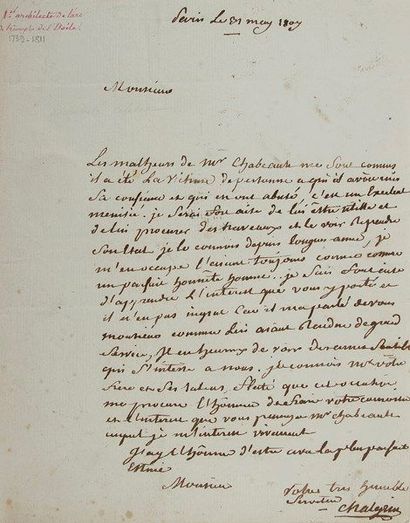 1er architecte de l'arc
de triomphe de l'Étoile
1739-1811
Paris Le 31 may 1807
Monsieur
Les malheurs de Mr Chabeaute me sont connus
il a été La victime de personne a qui il avoit mis
Sa confience et qui en ont abusé c'est un Exelent
menisié. je Serai Bien aise de lui estre utille et
de lui procurer des traveaux et le voir Reprendre
Son Etat. je le connois depuis longue anné, je
m'en occupe l'aiant toujours connu comme
un parfait honnête homme. je Suis
d'apprendre L'interest que vous y porté et
il n'en est pas ingrat Car il m'a parlé de vous
monsieur comme Lui aiant Rendue de grand
Service, Il est heureux de voir des ames Sensible
qui S'interesse a nous. je connois Mr votre
frere et Ses talens, flaté que cet occation
me procure l'honneur de faire votre connoissance
et L'interest que vous prenez a Mr Chabeaute
auquel je m'interesse vivement
J'ay l'honneur d'estre avec la plus parfait
Estime
Monsieur
Votre tres humble
Serviteur
Chalgrin